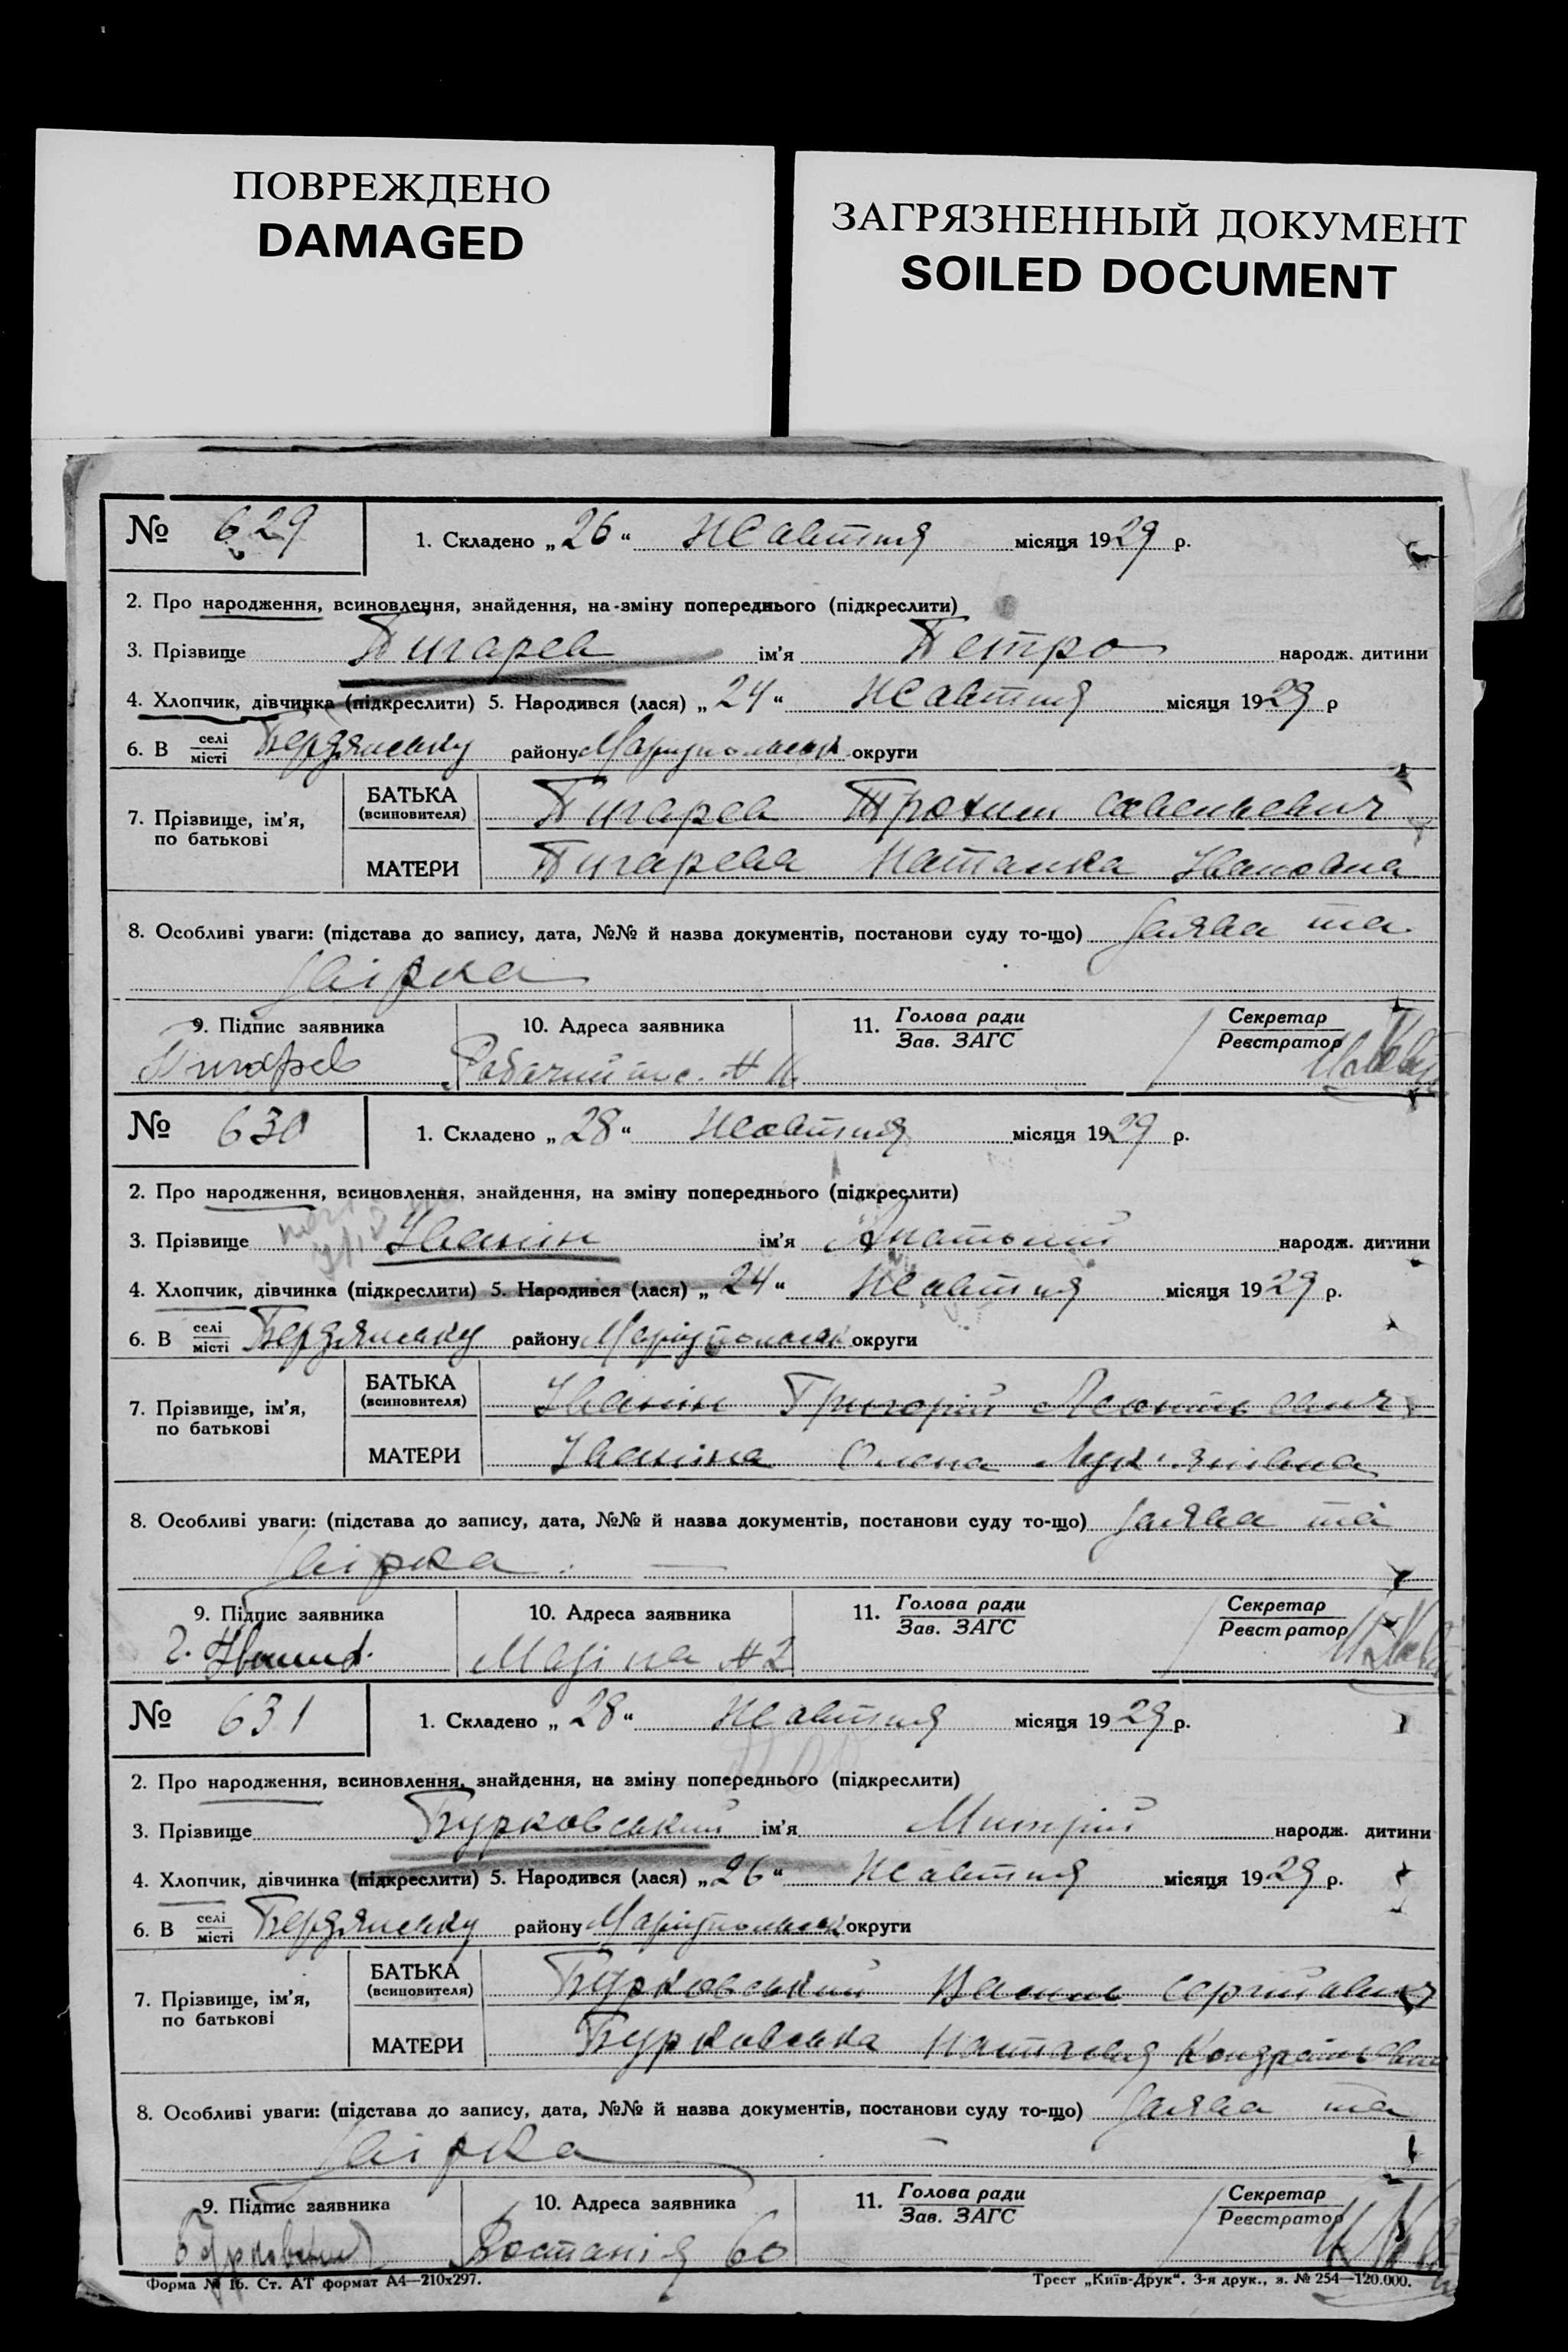 ПОВРЕЖДЕНО
DAMAGED
ЗАГРЯЗНЕННЫЙ ДОКУМЕНТ
SOILED DOCUMENT
№ 629 1. Складено „26“ Жовтня місяця 1929 р.
2. Про народження, всиновлення, знайдення, на зміну попереднього (підкреслити)
3. Прізвище Пигарев ім'я Петро народж. дитини
4. Хлопчик, дівчинка (підкреслити) 5. Народився (лася) „24“ Жовтня місяця 1929 р
6. В селі/місті Бердянську району Маріупольськ округи
7. Прізвище, ім'я, по батькові
БАТЬКА (всиновителя) Пигарев Трохим
МАТЕРИ Пигарева Наталка Івановна
8. Особливі уваги: (підстава до запису, дата, №№ й назва документів, постанови суду то-що) Заява та
звірка
9. Підпис заявника 10. Адреса заявника 11. Голова ради/Зав. ЗАГС Секретар/Реєстратор
Пигарев
№ 630 1. Складено „28“ Жовтня місяця 1929 р.
2. Про народження, всиновлення, знайдення, на зміну попереднього (підкреслити)
3. Прізвище Іванін ім'я Анатолій народж. дитини
4. Хлопчик, дівчинка (підкреслити) 5. Народився (лася) „24“ Жовтня місяця 1929 р.
6. В селі/місті Бердянську району Маріупольськ округи
7. Прізвище, ім'я, по батькові
БАТЬКА (всиновителя) Іванін Григорій
МАТЕРИ Іваніна Олена Лук'янівна
8. Особливі уваги: (підстава до запису, дата, №№ й назва документів, постанови суду то-що) Заява та
звірка
9. Підпис заявника 10. Адреса заявника 11. Голова ради/Зав. ЗАГС Секретар/Реєстратор
№ 631 1. Складено „28“ Жовтня місяця 1929 р.
2. Про народження, всиновлення, знайдення, на зміну попереднього (підкреслити)
3. Прізвище Бурковський ім'я Митрій народж. дитини
4. Хлопчик, дівчинка (підкреслити) 5. Народився (лася) „26“ Жовтня місяця 1929 р.
6. В селі/місті Бердянську району Маріупольськ округи
7. Прізвище, ім'я, по батькові
БАТЬКА (всиновителя) Бурковський Василь
МАТЕРИ Бурковська
8. Особливі уваги: (підстава до запису, дата, №№ й назва документів, постанови суду то-що) Заява та
звірка
9. Підпис заявника 10. Адреса заявника 11. Голова ради/Зав. ЗАГС Секретар/Реєстратор
Повстанія 60
Форма № 1б. Ст. АТ формат А4—210х297. Трест „Київ-Друк“. 3-я друк., з. № 254—120.000.